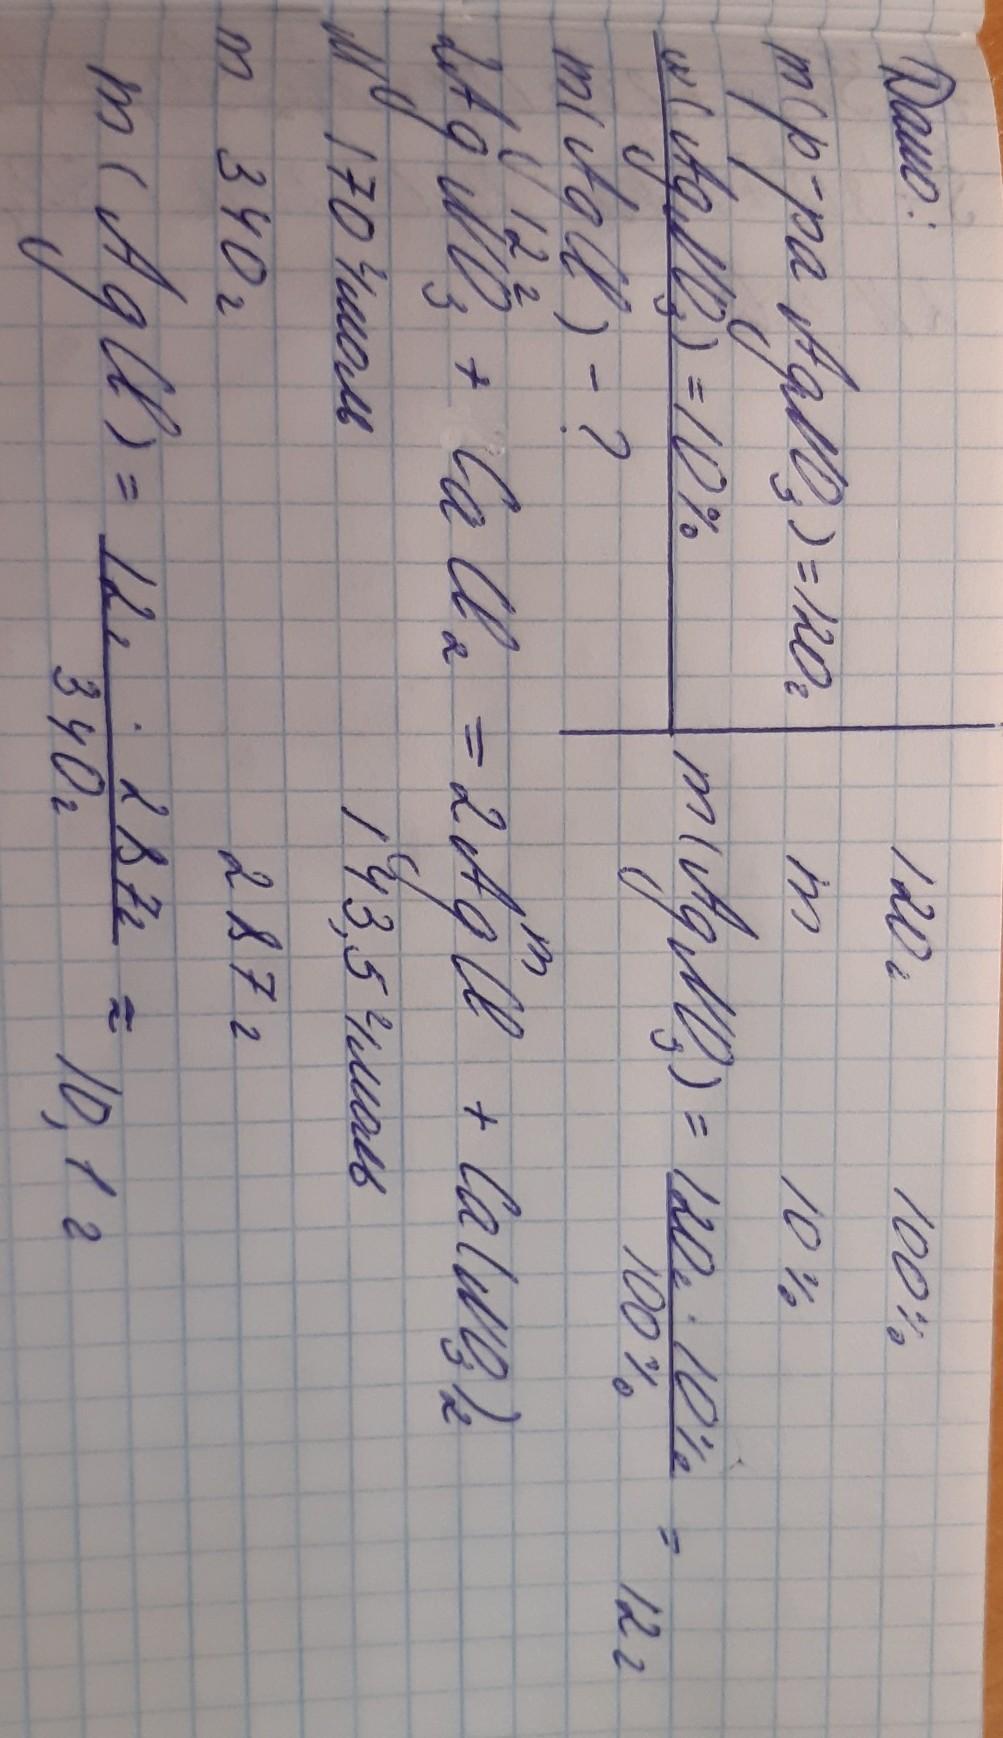 Дано:
m(р-ра AgNO₃) = 120г
w(AgNO₃) = 10%
m(AgCl) - ?
120г 100%
m 10%
m(AgNO₃) = 120г · 10% / 100% = 12г
12г m
2AgNO₃ + CaCl₂ = 2AgCl + Ca(NO₃)₂
M 170 г/моль 143,5 г/моль
m 340г 287г
m(AgCl) = 12г · 287г / 340г ≈ 10,1г